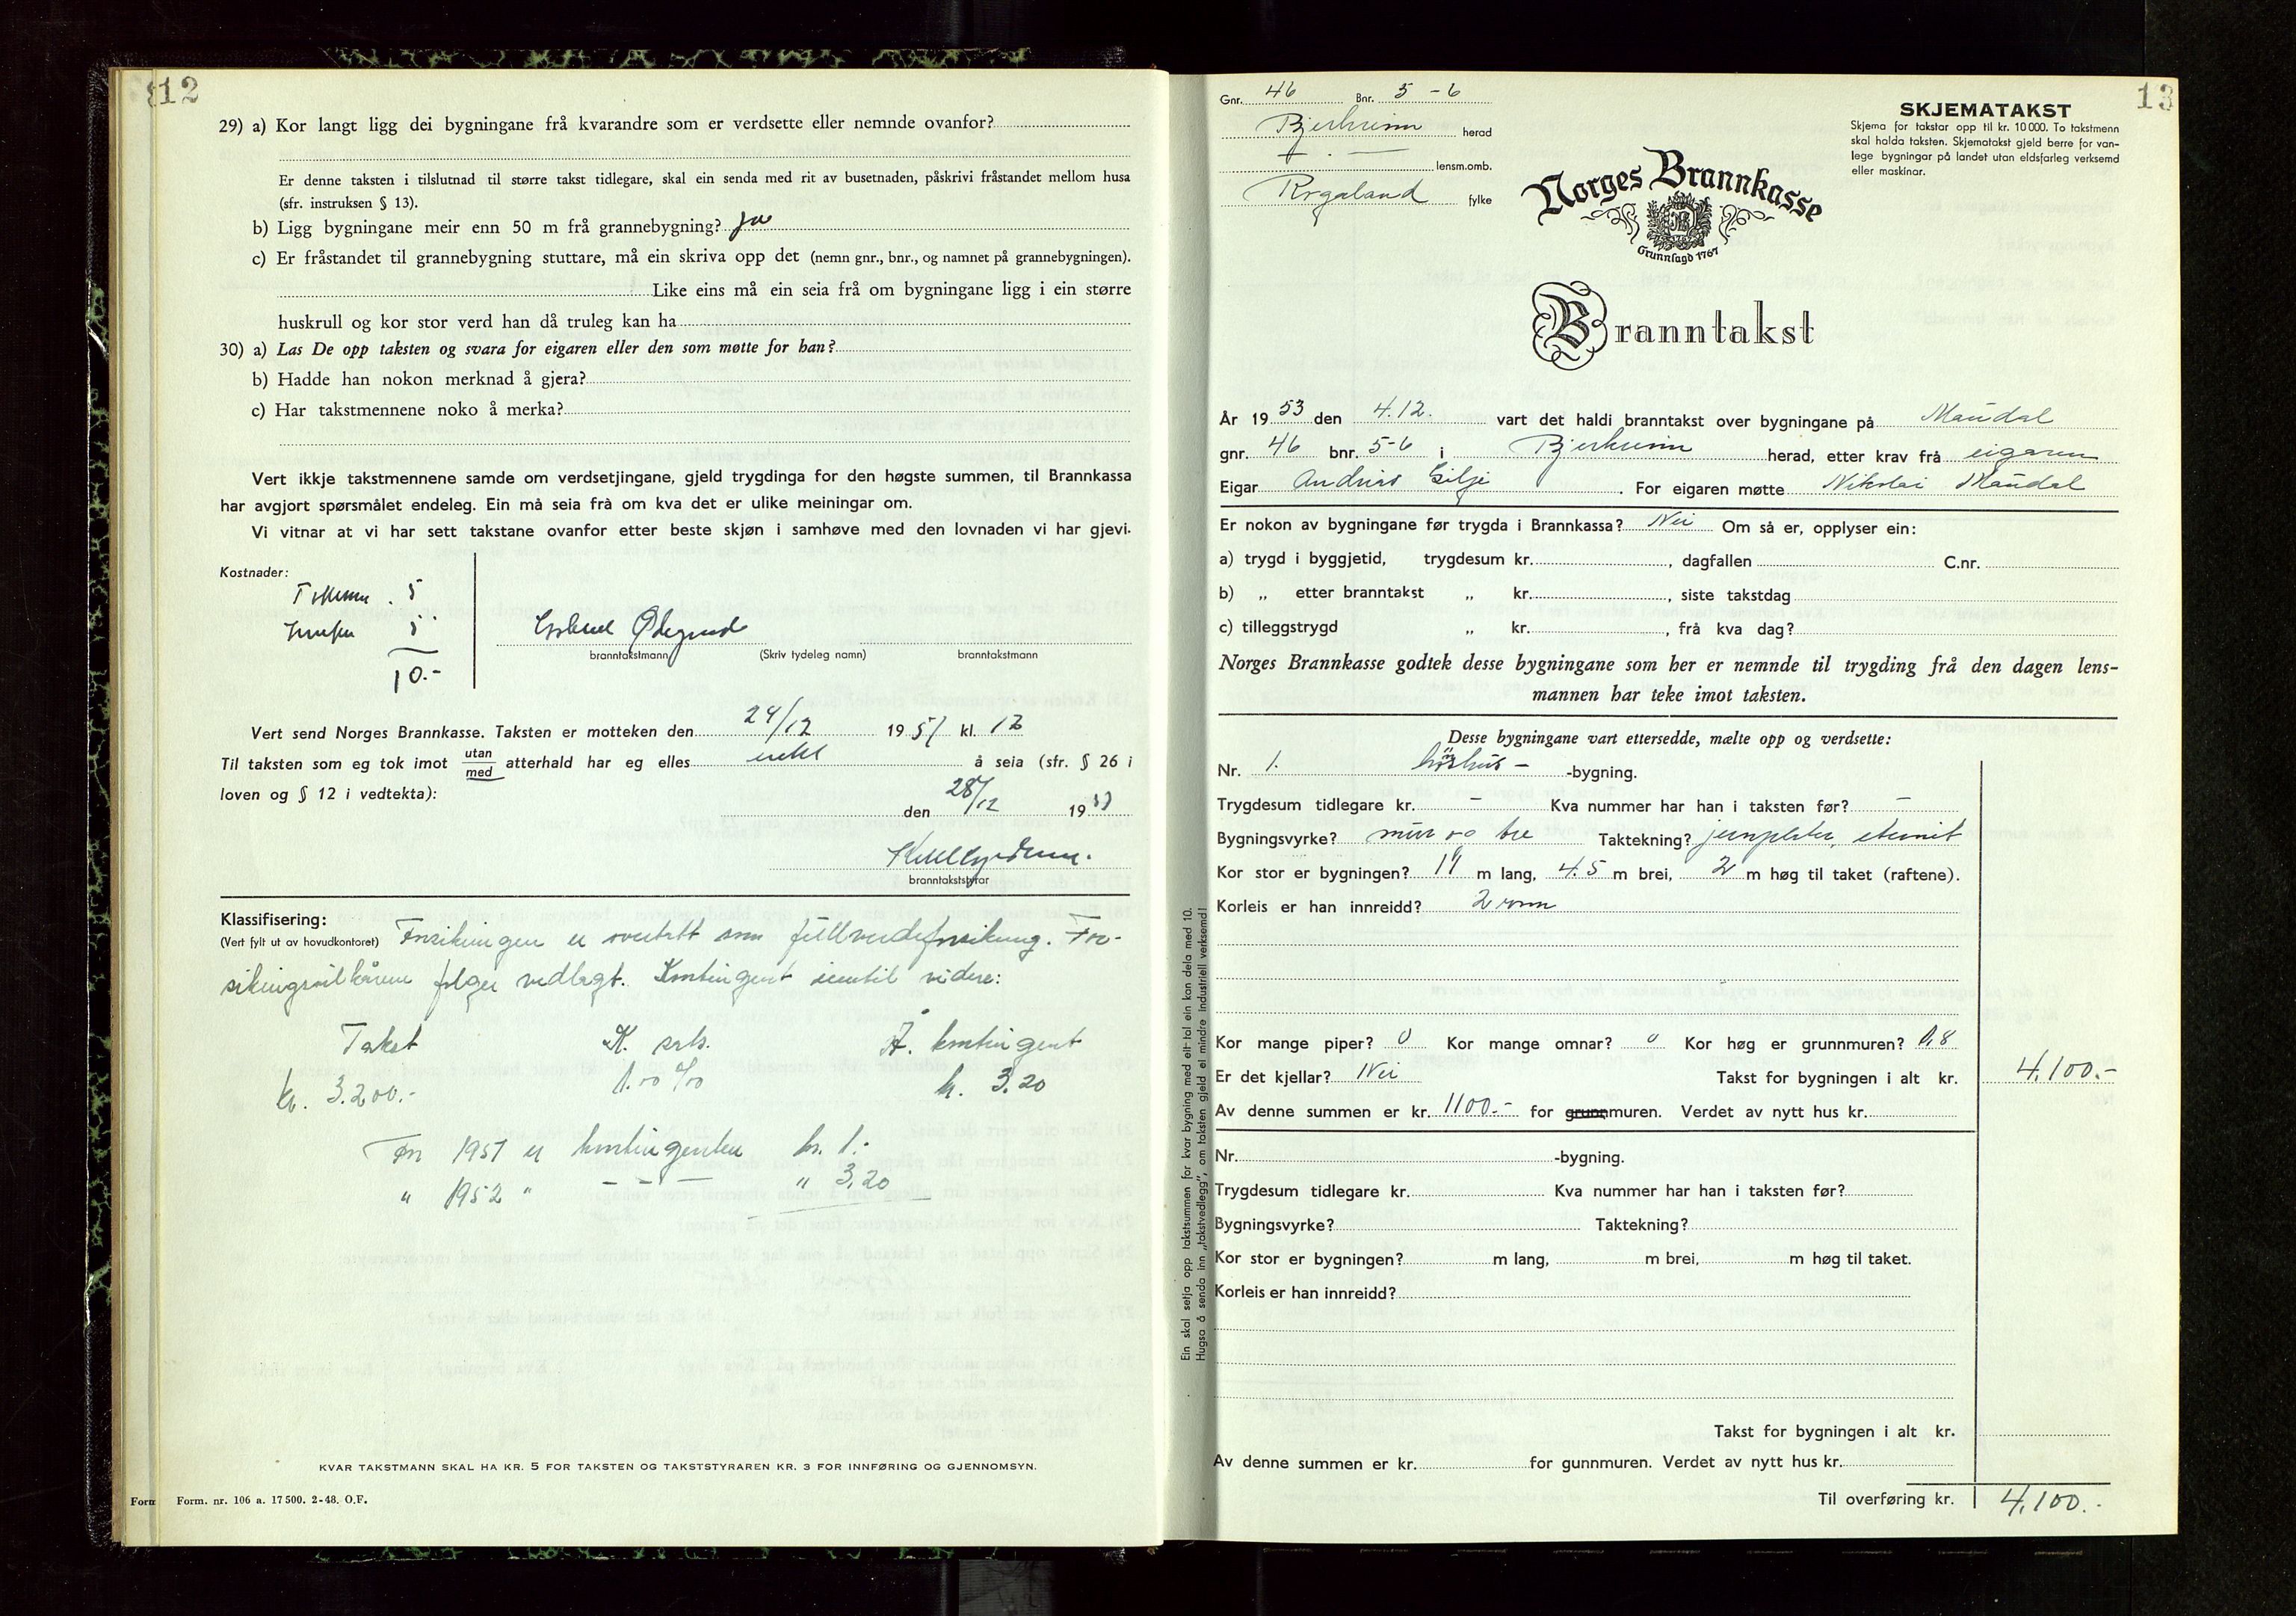 12
29) a) Kor langt ligg dei bygningane frå kvarandre som er verdsette eller nemnde ovanfor?
Er denne taksten i tilslutnad til større takst tidlegare, skal ein senda med rit av busetnaden, påskrivi fråstandet mellom husa
(sfr. instruksen § 13).
b) Ligg bygningane meir enn 50 m frå grannebygning? ja
c) Er fråstandet til grannebygning stuttare, må ein skriva opp det (nemn gnr., bnr., og namnet på grannebygningen).
Like eins må ein seia frå om bygningane ligg i ein større
huskrull og kor stor verd han då truleg kan ha
30) a) Las De opp taksten og svara for eigaren eller den som møtte for han?
b) Hadde han nokon merknad å gjera?
c) Har takstmennene noko å merka?
Vert ikkje takstmennene samde om verdsetjingane, gjeld trygdinga for den høgste summen, til Brannkassa
har avgjort spørsmålet endeleg. Ein må seia frà om kva det er ulike meiningar om.
Vi vitnar at vi har sett takstane ovanfor etter beste skjøn i samhøve med den lovnaden vi har gjevi.
Kostnader:
5
5
10.-
Gabriel Ødegård
branntakstmann (Skriv tydeleg namn) branntakstmann
Vert send Norges Brannkasse. Taksten er motteken den 24/12 1951 kl. 12
Til taksten som eg tok imot utan/med atterhald har eg elles å seia (sfr. § 26 i
loven og § 12 i vedtekta):
den 28/12 19
branntakststyrar
Klassifisering:
(Vert fylt ut av hovudkontoret) Forsikringen er overtatt som fullverdeforsikring. For-
sikringsvilkårene følger vedlagt. Kontingent inntil videre:
Takst K. sats. Å. kontingent
kr. 3.200.- 1.00 ‰ kr. 3.20
For 1951 er kontingenten kr. 1.-
" 1952 " - - - " 3,20
KVAR TAKSTMANN SKAL HA KR. 5 FOR TAKSTEN OG TAKSTSTYRAREN KR. 3 FOR INNFØRING OG GJENNOMSYN.
Form Form. nr. 106 a. 17 500. 2-48. O.F.
13
Gnr. 46 Bnr. 5 - 6
Bjerkreim herad
lensm.omb.
Rogaland fylke
SKJEMATAKST
Skjema for takstar opp til kr. 10 000. To takstmenn
skal halda taksten. Skjematakst gjeld berre for van-
lege bygningar på landet utan eldsfarleg verksemd
eller maskinar.
Norges Brannkasse
Grunnlagd 1767
Branntakst
År 1953 den 4.12. vart det haldi branntakst over bygningane på Maudal
gnr. 46 bnr. 5-6 i Bjerkreim herad, etter krav frå eigaren
Eigar Andreas Gilje. For eigaren møtte Nikolai Maudal
Er nokon av bygningane før trygda i Brannkassa? Nei Om så er, opplyser ein:
a) trygd i byggjetid, trygdesum kr. , dagfallen C.nr.
b) „ etter branntakst „ kr. , siste takstdag
c) tilleggstrygd „ kr. , frå kva dag?
Norges Brannkasse godtek desse bygningane som her er nemnde til trygding frå den dagen lens-
mannen har teke imot taksten.
Desse bygningane vart ettersedde, mælte opp og verdsette:
Nr. 1. -bygning.
Trygdesum tidlegare kr. - Kva nummer har han i taksten før? -
Bygningsvyrke? mur og tre Taktekning? jernplater, eternit
Kor stor er bygningen? 11 m lang, 4.5 m brei, 2 m høg til taket (raftene).
Korleis er han innreidd? 2 rom
Kor mange piper? 0 Kor mange omnar? 0 Kor høg er grunnmuren? 0,8
Er det kjellar? Nei Takst for bygningen i alt kr. 4.100.-
Av denne summen er kr. 1100.- for grunnmuren. Verdet av nytt hus kr.
Nr. -bygning.
Trygdesum tidlegare kr. Kva nummer har han i taksten før?
Bygningsvyrke? Taktekning?
Kor stor er bygningen? m lang, m brei, m høg til taket.
Korleis er han innreidd?
Takst for bygningen i alt kr.
Av denne summen er kr. for gunnmuren. Verdet av nytt hus kr.
Til overføring kr. 4.100.-
Ein skal setja opp takstsummen for kvar bygning med eit tal ein kan dela med 10.
Hugsa å senda inn „takstvedlegg”, om taksten gjeld ei mindre industriell verksemd!